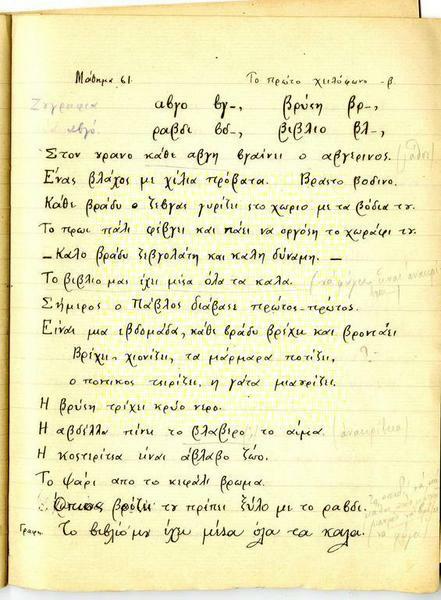 Μάθημα 61. Το πρώτο χειλόφωνο -β.
Ζυγραφια αβγο βγ-, βρύση βρ-,
αβγό. ραβδι βδ-, βιβλιο βλ-,
Στον υρανο κάθε αβγη βγαίνει ο αβγερινος.
Ένας βλάχος με χίλια πρόβατα. Βραστο βοδινο.
Κάθε βράδυ ο ζεβγας γυρίζει στο χωριο με τα βόδια τυ.
Το πρωι πάλι φέβγει και πάει να οργόση το χωράφι τυ.
– Καλο βράδυ ζεβγολάτη και καλη δύναμη. –
Το βιβλιο μας έχει μέσα όλα τα καλα.
Σήμερος ο Πάβλος διάβασε πρώτος-πρώτος.
Είναι μια εβδομάδα, κάθε βράδυ βρέχει και βροντάει
Βρέχει, χιονίζει, τα μάρμαρα ποτίζει, ?
ο ποντικος τσιρίζει, η γάτα μιαυρίζει.
Η βρύση τρέχει κρύο νερο.
Η αβδέλλα πίνει το βλαβερο το αίμα.
Η κοσταρίτσα είναι άβλαβο ζώο.
Το ψάρι απο το κεφάλι βρωμα.
Όποιος βρίζει τυ πρέπει ξύλο με το ραβδι.
Γραφη. Το βιβλιο μυ έχει μέσα όλα τα καλα.